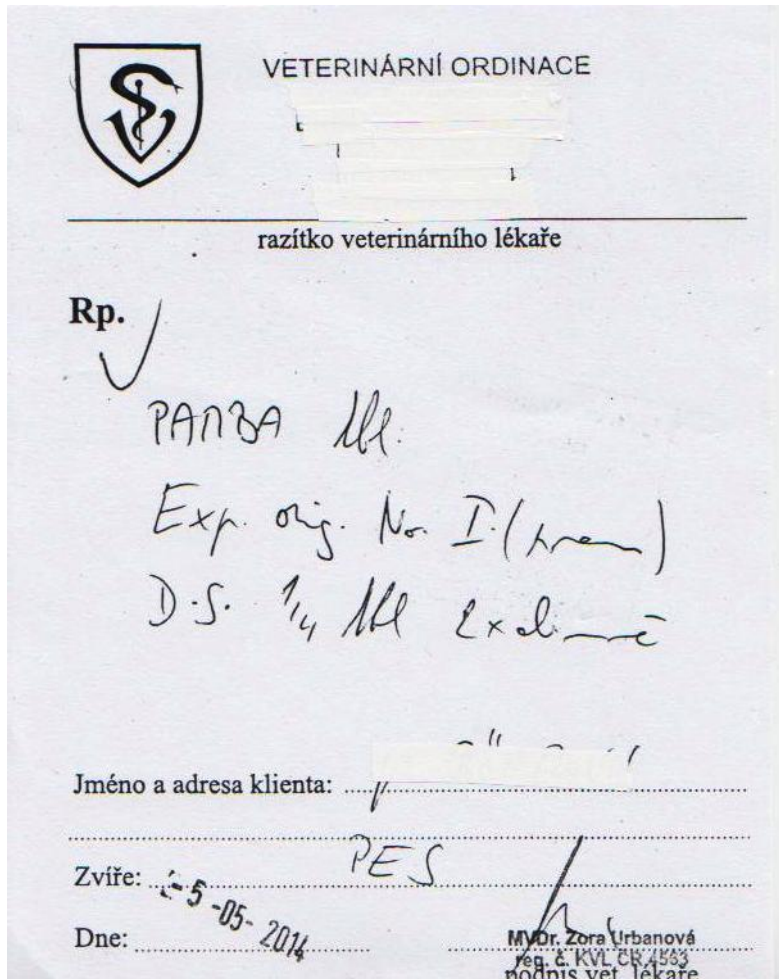 VETERINÁRNÍ ORDINACE
razítko veterinárního lékaře
Rp.
PAMBA tbl.
Exp. orig. No. I. (unam)
D.S. 1/4 tbl 2x denně
Jméno a adresa klienta:
Zvíře: PES
Dne: -5-05-2014
MVDr. Zora Urbanová
reg. č. KVL ČR 4563
podpis vet. lékaře